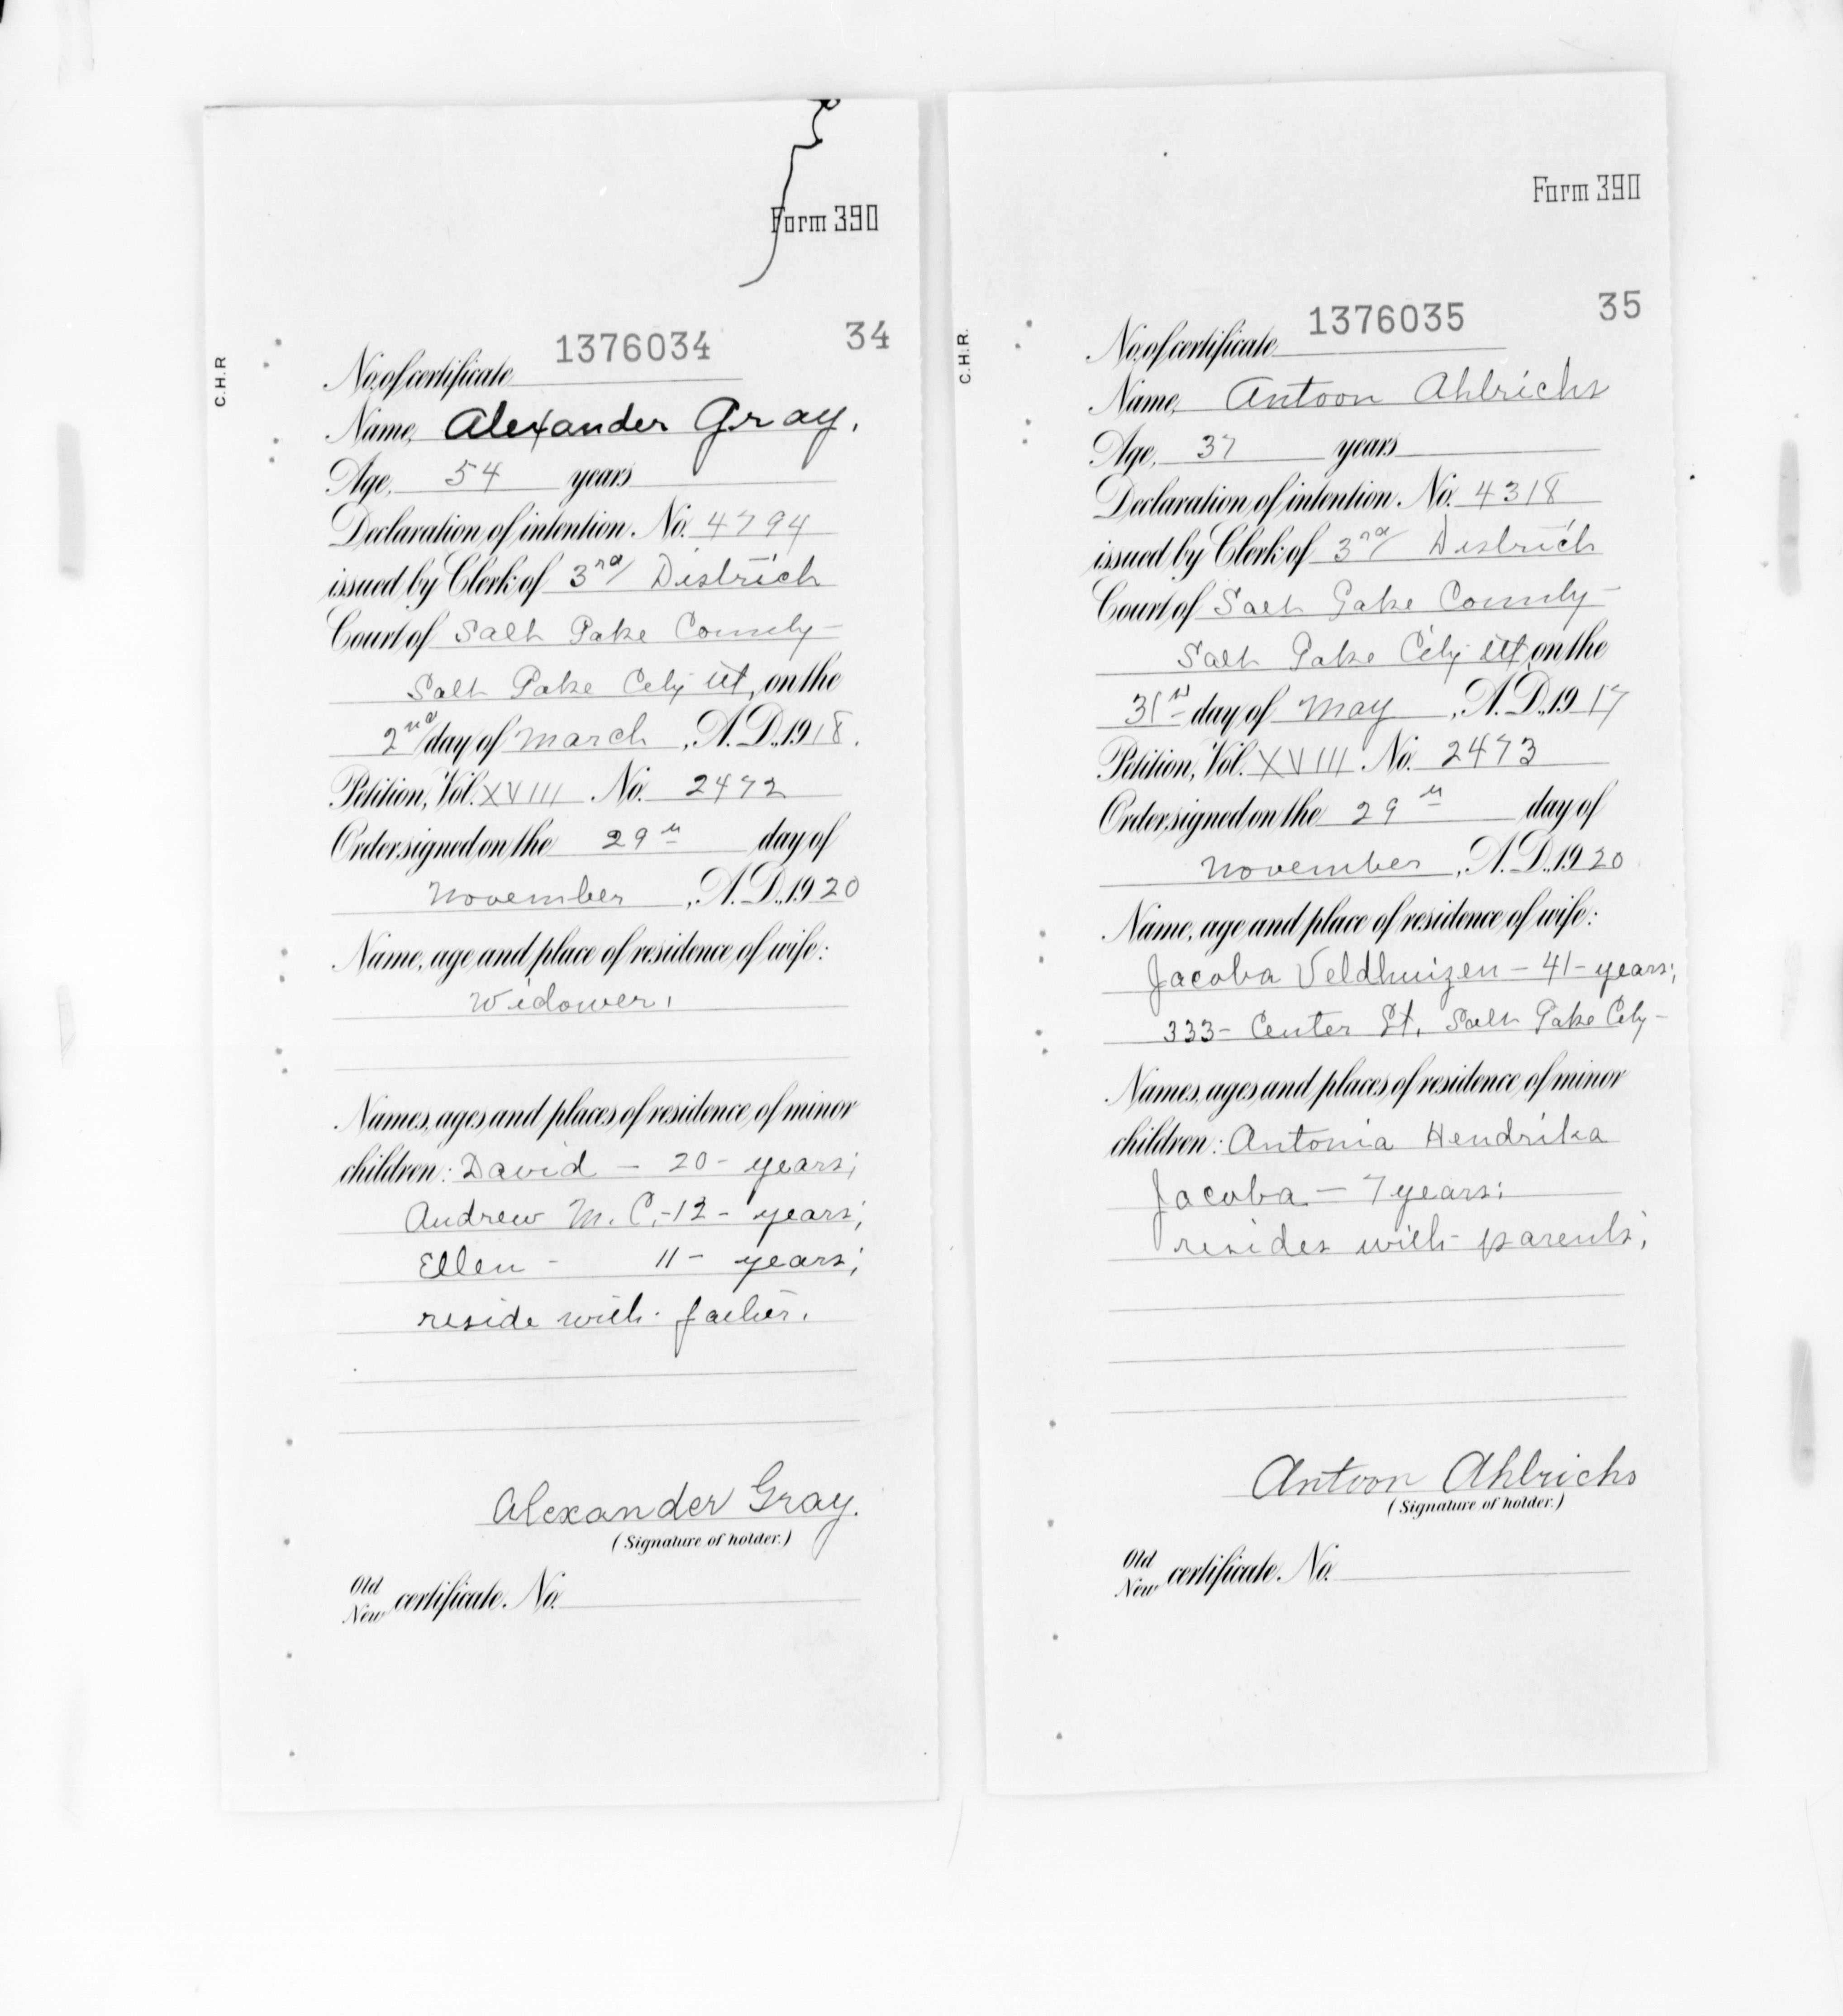 Form 390
C.H.R
1376034 34
No. of certificate
Name, Alexander Gray.
Age, 54 years
Declaration of intention, No. 4794
issued by Clerk of 3rd District
Court of Salt Lake County
Salt Lake City Ut, on the
2nd day of March, A.D., 1918.
Petition, Vol. XVIII No. 2472
Order signed on the 29th day of
November, A.D., 1920
Name, age and place of residence of wife:
Widower.
Names, ages and places of residence of minor
children: David - 20 - years;
Andrew M. C. - 12 - years;
Ellen - 11 - years;
reside with father.
Alexander Gray.
(Signature of holder.)
Old
New certificate, No.
Form 390
C.H.R.
1376035 35
No. of certificate
Name, Antoon Ahlrichs
Age, 37 years
Declaration of intention, No. 4318
issued by Clerk of 3rd District
Court of Salt Lake County
Salt Lake City Ut, on the
31st day of May, A.D., 1917
Petition, Vol. XVIII No. 2473
Order signed on the 29th day of
November, A.D., 1920
Name, age and place of residence of wife:
Jacoba Veldhuizen - 41 - years;
333 - Center St. Salt Lake City -
Names, ages and places of residence of minor
children: Antonia Hendrika
Jacoba - 7 years;
resides with parents;
Antoon Ahlrichs
(Signature of holder.)
Old
New certificate, No.